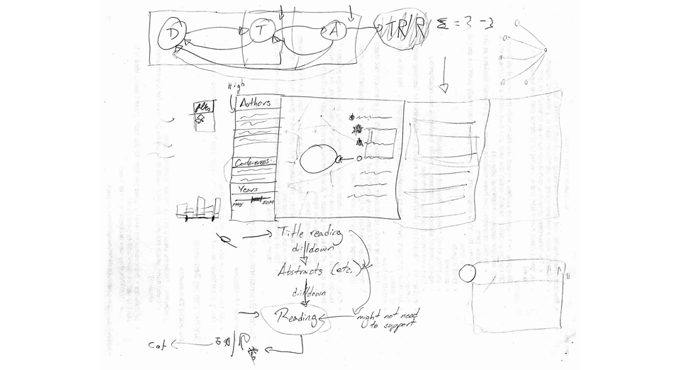 D T A TR/R
High
Authors
Conferences
Years
Title reading
drilldown
Abstracts (etc.)
drilldown
Reading
might not need
to support